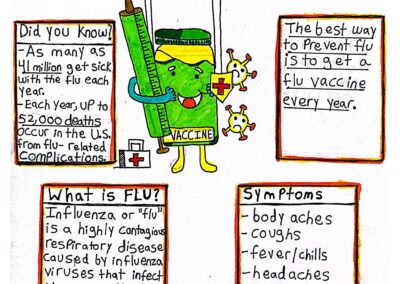 Did you Know?
-As many as
41 million get sick
with the flu each
year.
-Each year, up to
52,000 deaths
occur in the U.S.
from flu-related
complications.
VACCINE
The best way
to Prevent flu
is to get a
flu vaccine
every year.
What is FLU?
Influenza or "flu"
is a highly contagious
respiratory disease
caused by influenza
viruses that infect
Symptoms
-body aches
-coughs
-fever/chills
-headaches